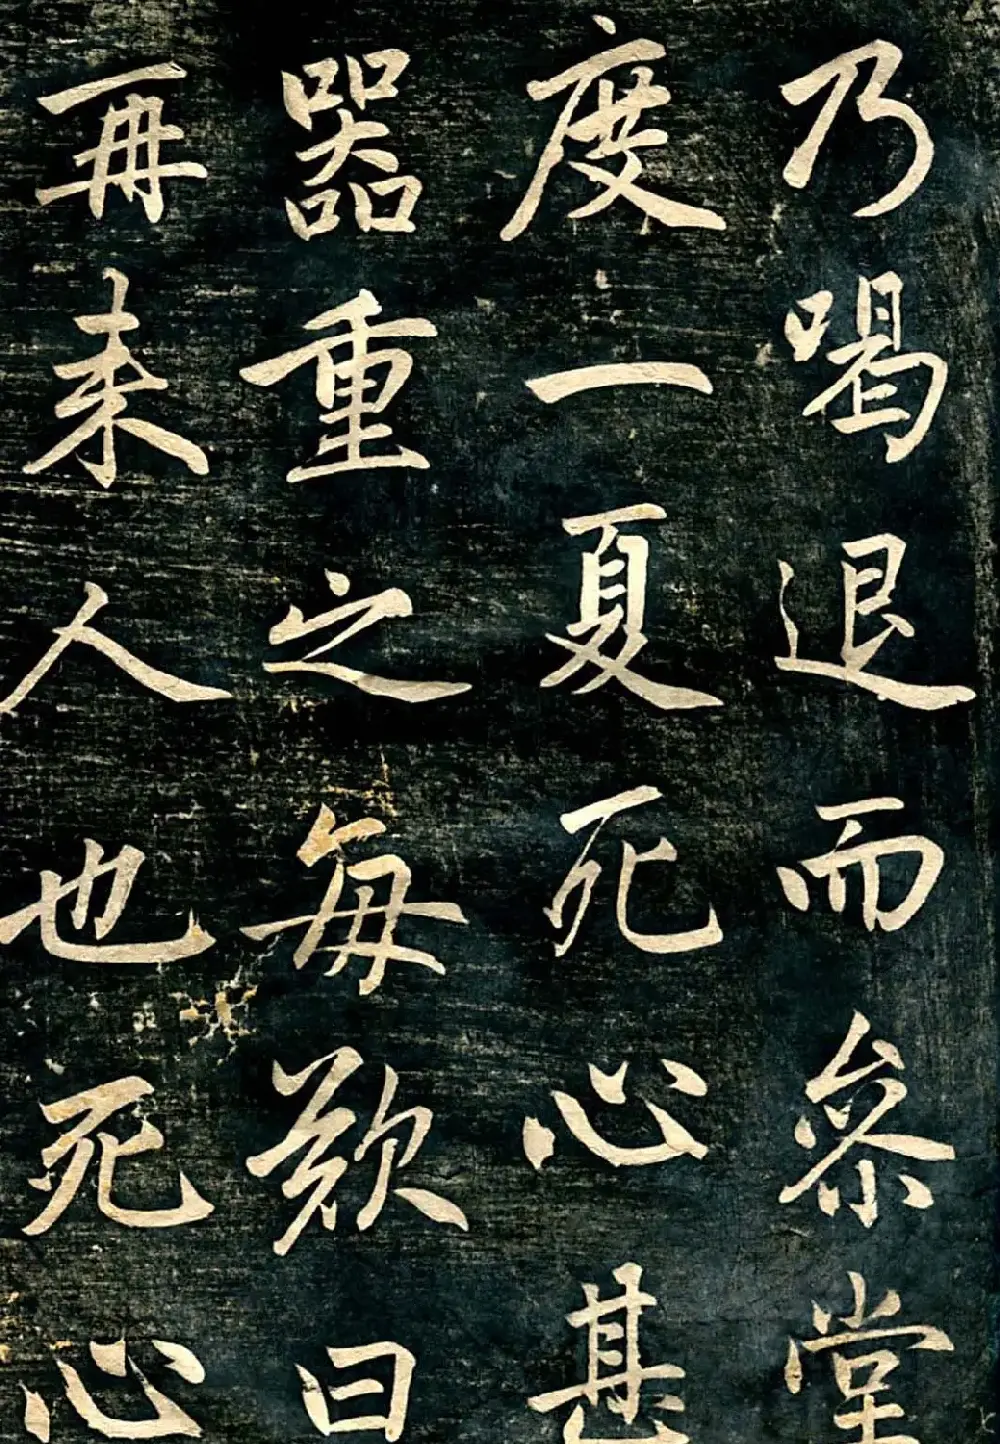 乃喝退而参堂
度一夏死心甚
器重之每歎曰
再来人也死心